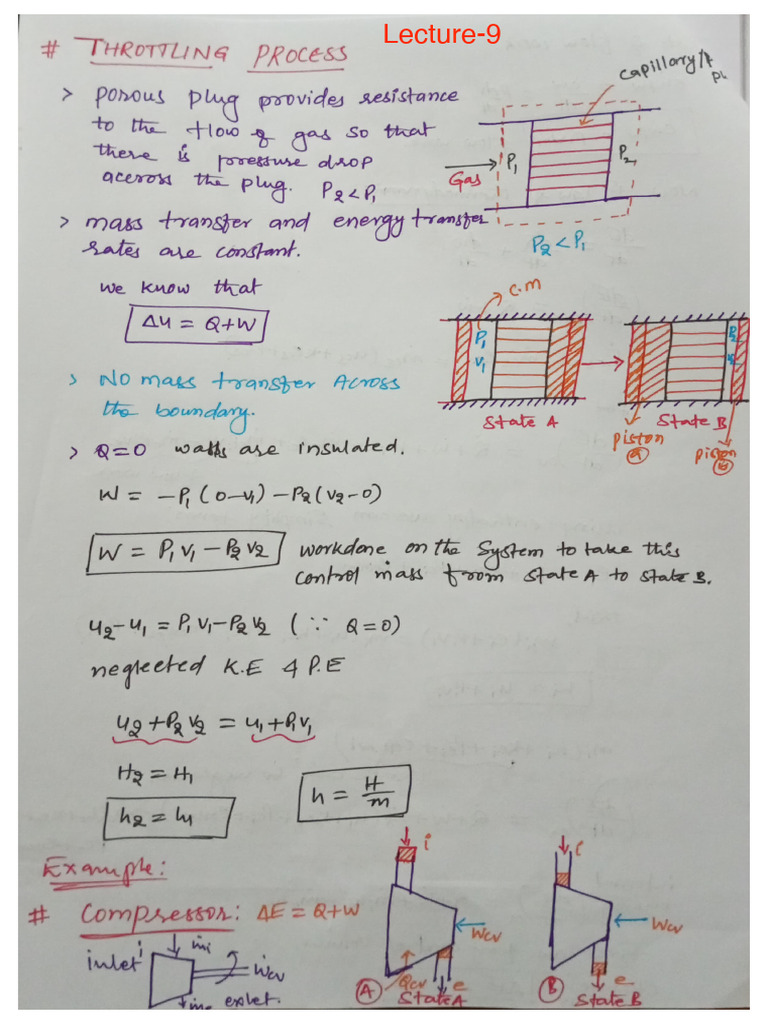 Lecture-9
# THROTTLING PROCESS
> porous plug provides resistance
to the flow of gas so that
there is pressure drop
aceross the plug. P2<P1
capillary/
Gas
P1
P2
P2<P1
> mass transfer and energy transfer
rates are constant.
we know that
Δu = Q+W
C.m
P1
V1
P2
V2
State A
State B
piston
A
piston
B
> NO mass transfer Across
the boundary.
> Q=0 walls are insulated.
W = -P1(0-V1) -P2(V2-0)
W = P1V1-P2V2
workdone on the System to take this
control mass from State A to State B.
u2-u1 = P1V1-P2V2 (∵ Q=0)
neglected K.E & P.E
u2+P2V2 = u1+P1V1
H2=H1
h2=h1
h = H/m
Example:
# Compressor: ΔE = Q+W
inlet
i
ṁi
Ẇcv
ṁe
exlet.
i
Wcv
Qcv
e
A
State A
i
Wcv
e
B
State B